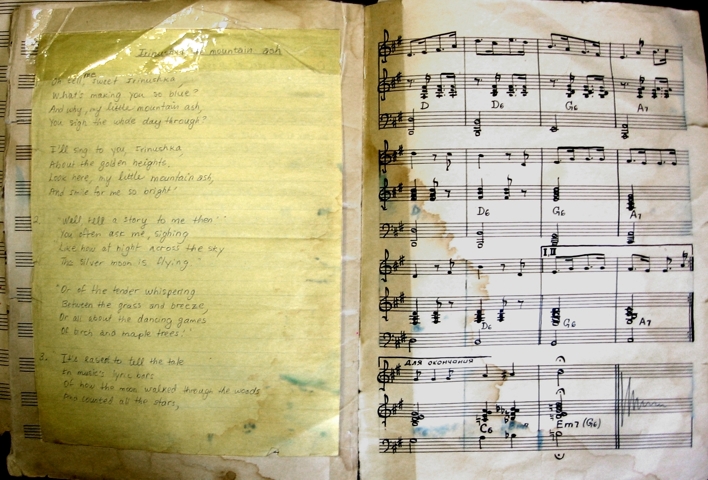 Irinushka mountain ash
me
Oh tell, sweet Irinushka,
What's making you so blue?
And why, my little mountain ash,
You sigh the whole day through?
I'll sing to you, Irinushka
About the golden heights.
Look here, my little mountain ash,
And smile for me so bright!
2. "Well tell a story to me then!"
You often ask me, sighing
Like how at night across the sky
The silver moon is flying.
"Or of the tender whispering
Between the grass and breeze,
Or all about the dancing games
Of birch and maple trees!"
3. It's easier to tell the tale
In music's lyric bars
Of how the moon walked through the woods
And counted all the stars,
D D6 G6 A7
D D6 G6 A7
I, II
D6 G6 A7
Для окончания
C6 Em7 (G6)